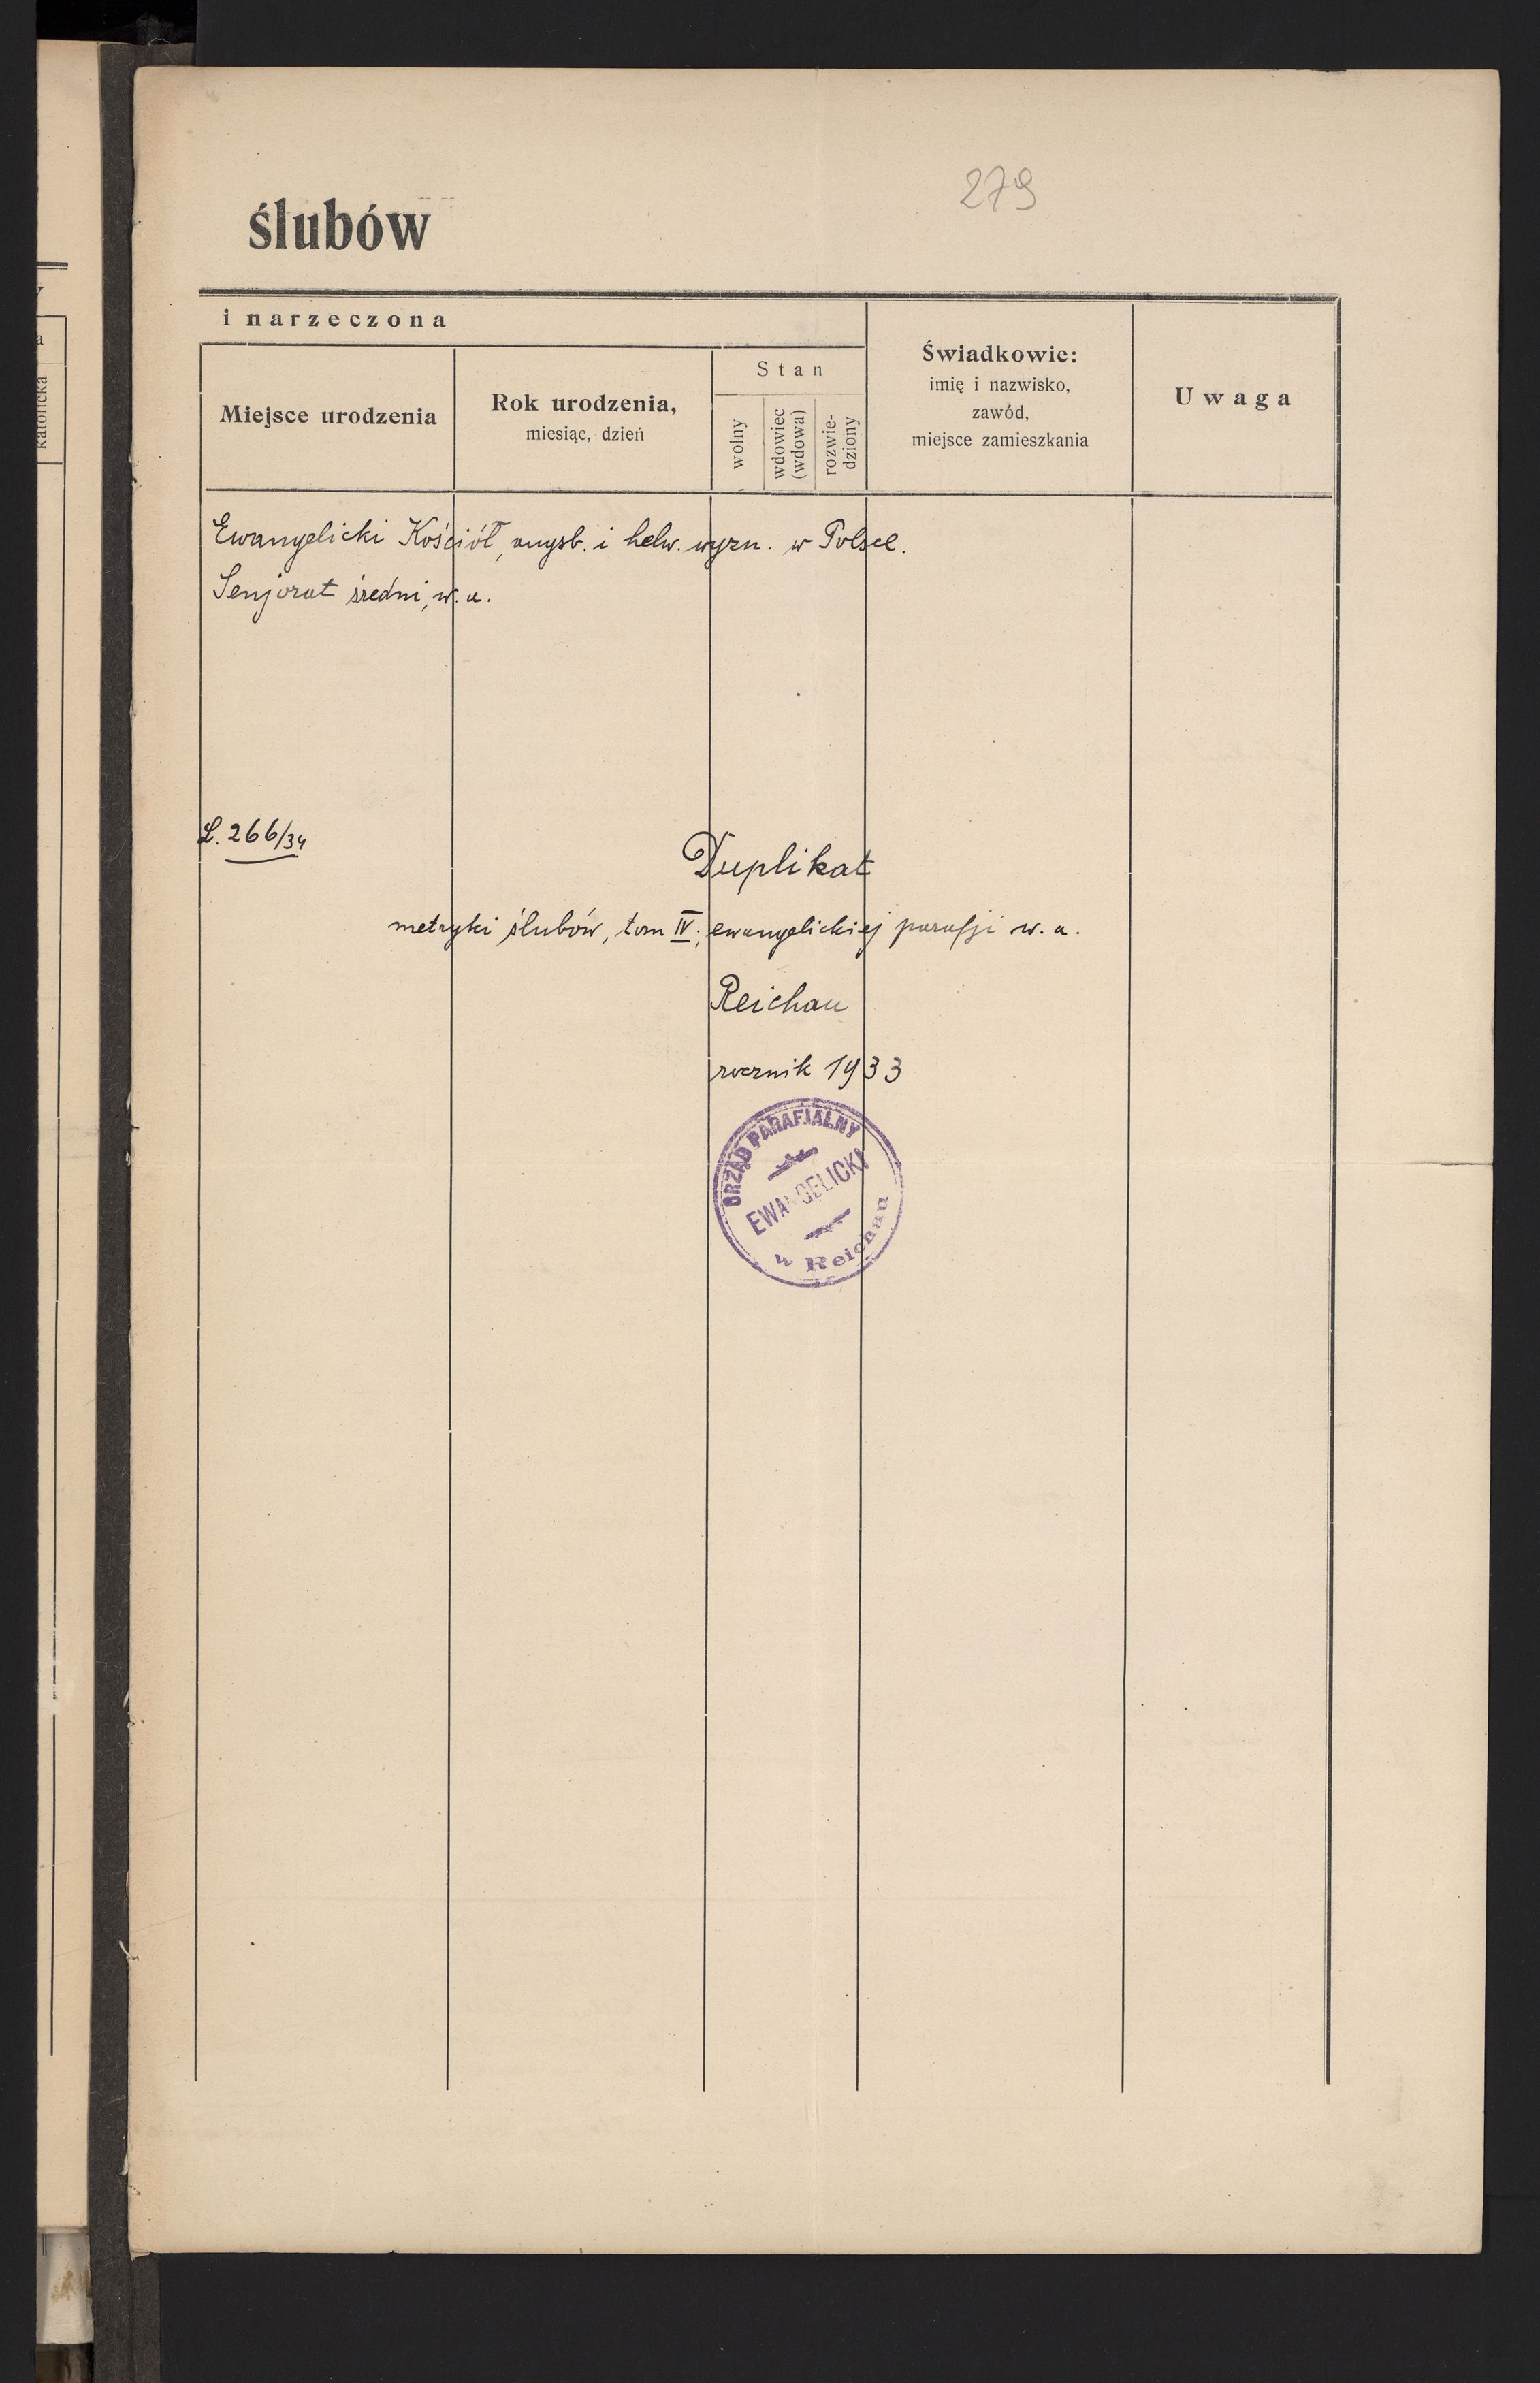 279
ślubów
i narzeczona
Miejsce urodzenia
Rok urodzenia,
miesiąc, dzień
Stan
wolny
wdowiec
(wdowa)
rozwie-
dziony
Świadkowie:
imię i nazwisko,
zawód,
miejsce zamieszkania
Uwaga
Ewangelicki Kościół, augsb. i helw. wyzn. w Polsce.
Senjorat średni, w. a.
L. 266/34
Duplikat
metryki ślubów, tom IV; ewangelickiej parafji w. a.
Reichau
rocznik 1933
URZĄD PARAFJALNY
EWANGELICKI
w Reichau
katolicka